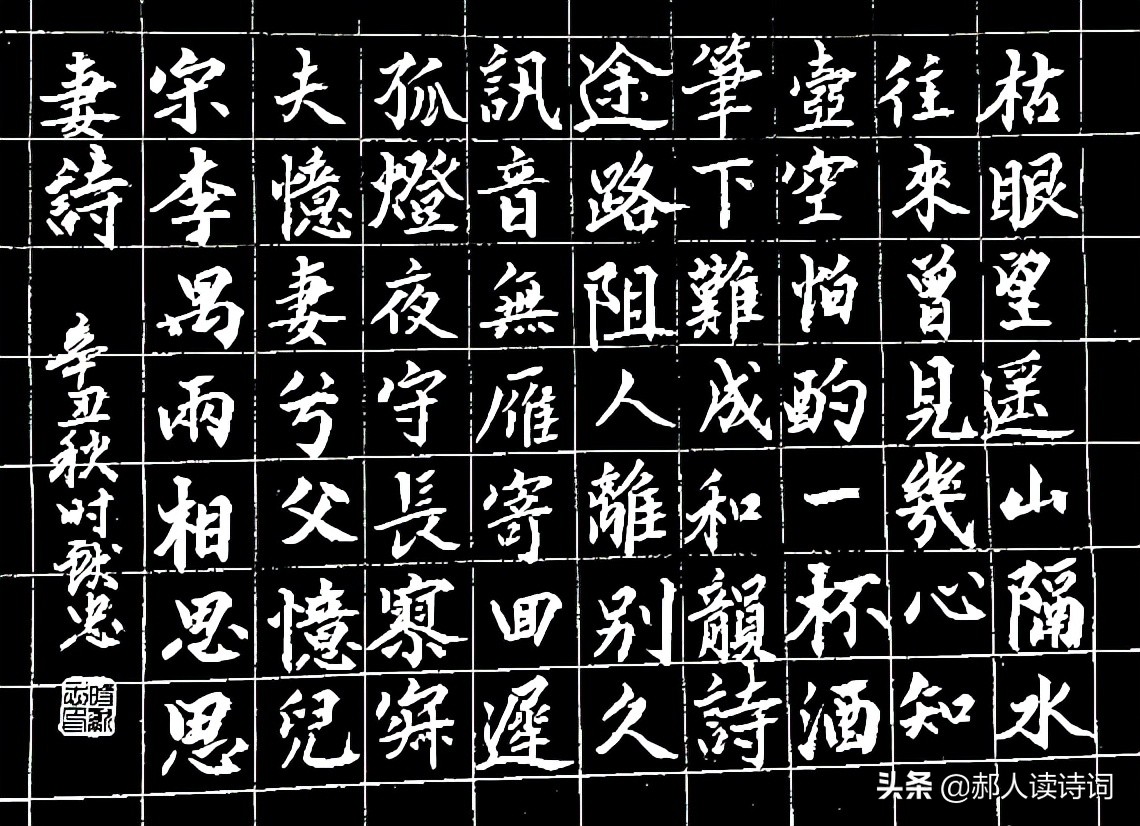 枯眼望遥山隔水
往來曾見幾心知
壺空怕酌一杯酒
筆下難成和韻詩
途路阻人離别久
訊音無雁寄回遲
孤燈夜守長寥寂
夫憶妻兮父憶兒
宋李禺兩相思思
妻詩 辛丑秋时献忠
头条 @郝人读诗词